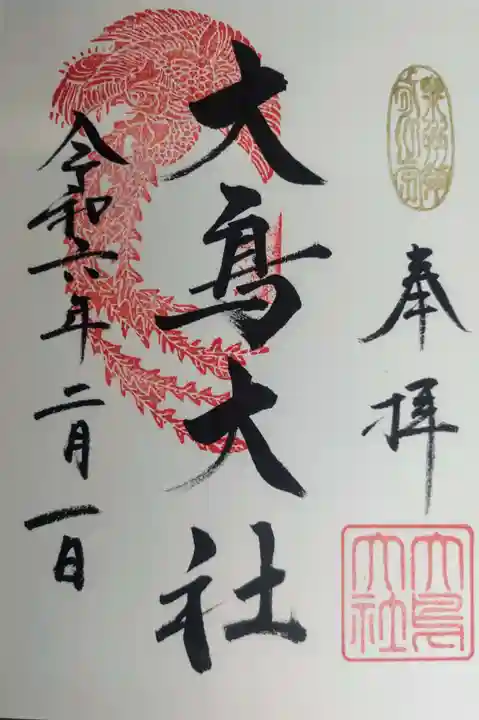 奉拝
大鳥大社
令和六年二月一日
大鳥大社